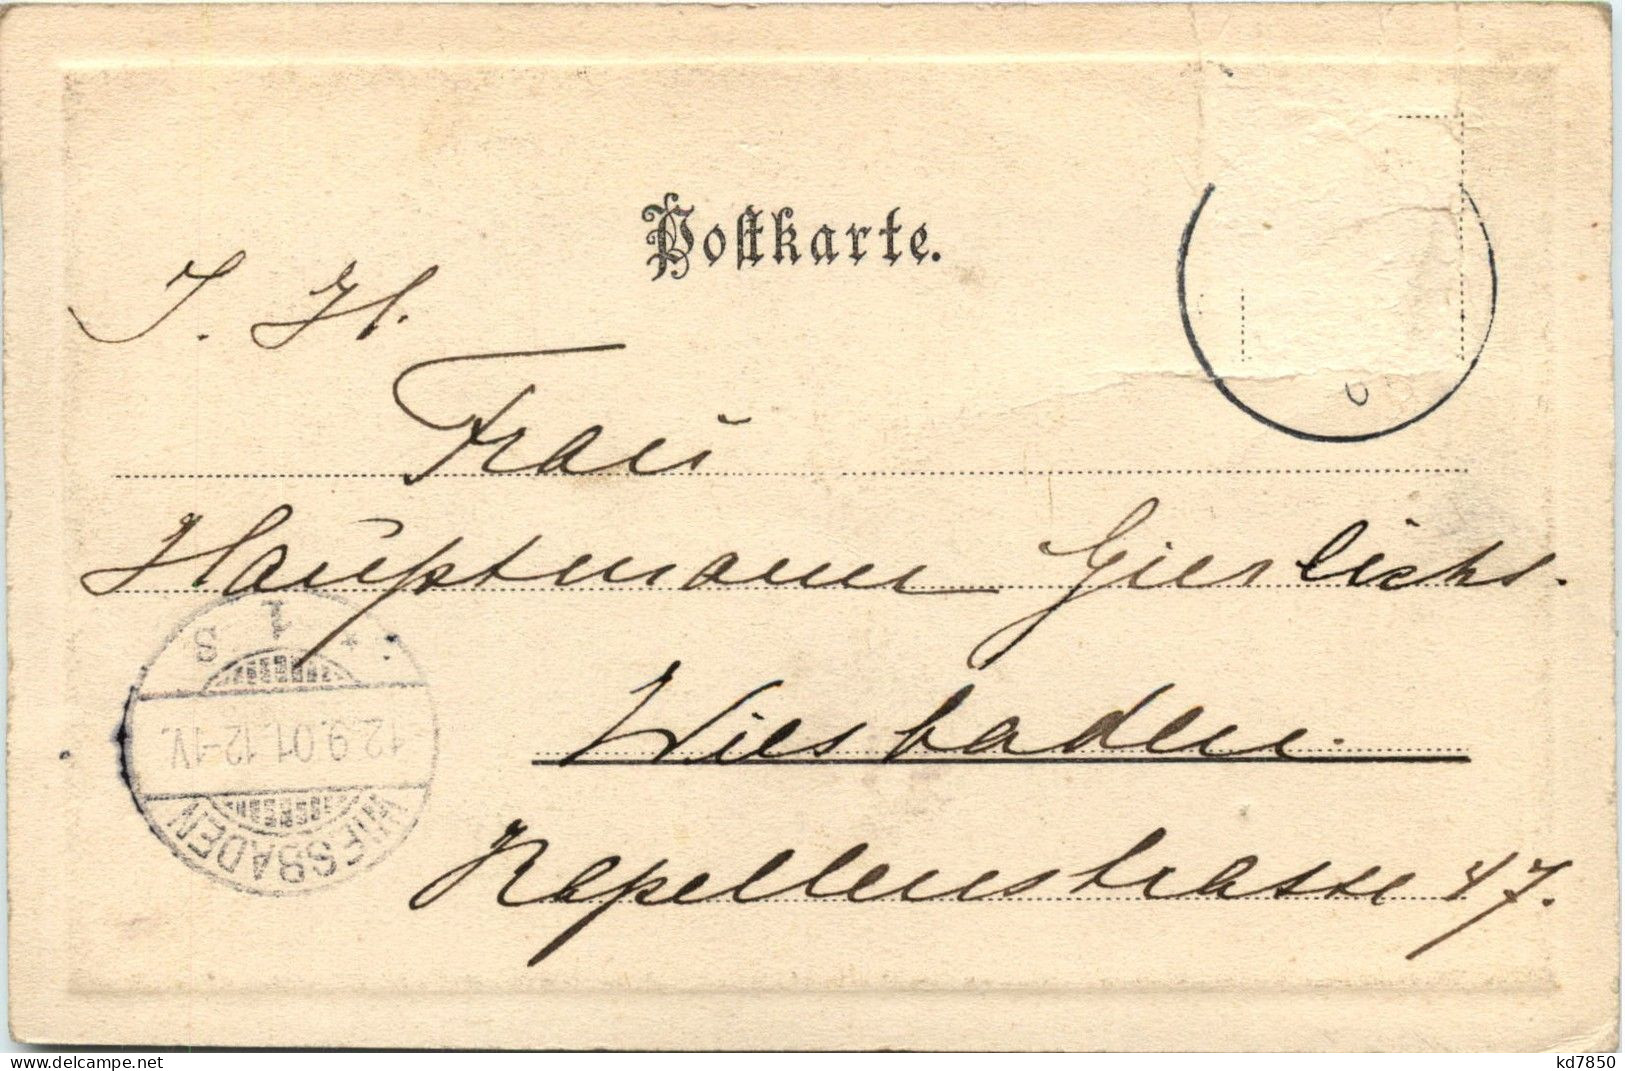 Postkarte.
I. H.
Frau
Hauptmann Gierlichs.
Wiesbaden.
Kapellenstrasse 47.
* 1 s
12.9.01.12-1V.
WIESBADEN
www.delcampe.net
kd7850